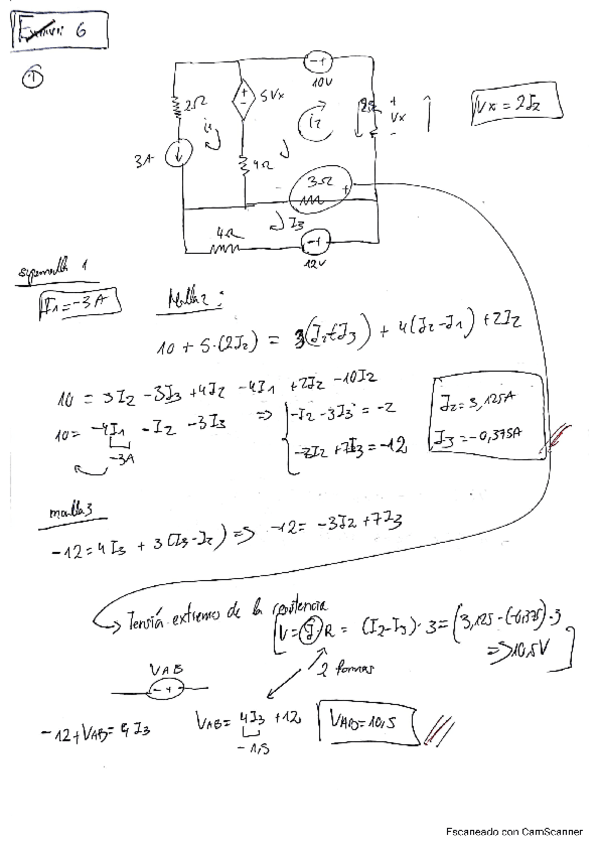 Examen 6
①
2Ω
5Vx
+
-
- +
10V
2Ω
+
Vx
-
Vx = 2I2
3A
i1
4Ω
i2
3Ω
+
4Ω
I3
- +
12V
supermalla 1
I1 = -3A
Malla 2:
10 + 5·(2I2) = 3(I2-I3) + 4(I2-I1) + 2I2
10 = 3I2 - 3I3 + 4I2 - 4I1 + 2I2 - 10I2
10 = -4I1 - I2 - 3I3 ⇒ { -I2 - 3I3 = -2
-3A
-3I2 + 7I3 = -12
I2 = 3,125A
I3 = -0,375A
malla 3
-12 = 4I3 + 3(I3-I2) => -12 = -3I2 + 7I3
Tensión extremos de la resistencia
V = I·R = (I2-I3)·3 = (3,125-(-0,375)·3
=> 10,5V
2 formas
VAB
- +
-12+VAB = 4I3
VAB = 4I3 + 12
-1,5
VAB = 10,5
Escaneado con CamScanner